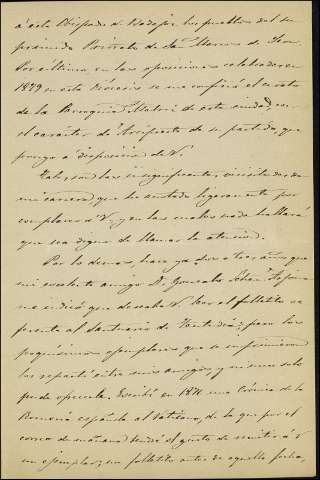 á este Obispado de Badajoz los pueblos del su
primido Priorato de San Marcos de Leon.
Por último, en las oposiciones celebradas en
1879 en esta Diócesis se me confirió el curato
de la Parroquia Matriz de esta ciudad, con
el carácter de Arcipreste de su partido, que
pongo a disposicion de V.
Tales son las insignificantes vicisitudes de
mi carrera, que he anotado ligeramente por
complacer á V. y en las cuales nada hallará
que sea digno de llamar la atencion.
Por lo demas, hace ya dos o tres años que
mi excelente amigo D. Gonzalo
me indicó que deseaba V. leer el folletito re
ferente al Santuario de Tentudia; pero los
poquísimos ejemplares que se imprimieron
los repartí entre mis amigos, y ni uno solo
puedo ofrecerle. Escribí en 1876 una Crónica de la
Romería española al Vaticano, de la que por el
correo de mañana tendré el gusto de remitir á V.
un ejemplar; un folletito antes de aquella fecha,